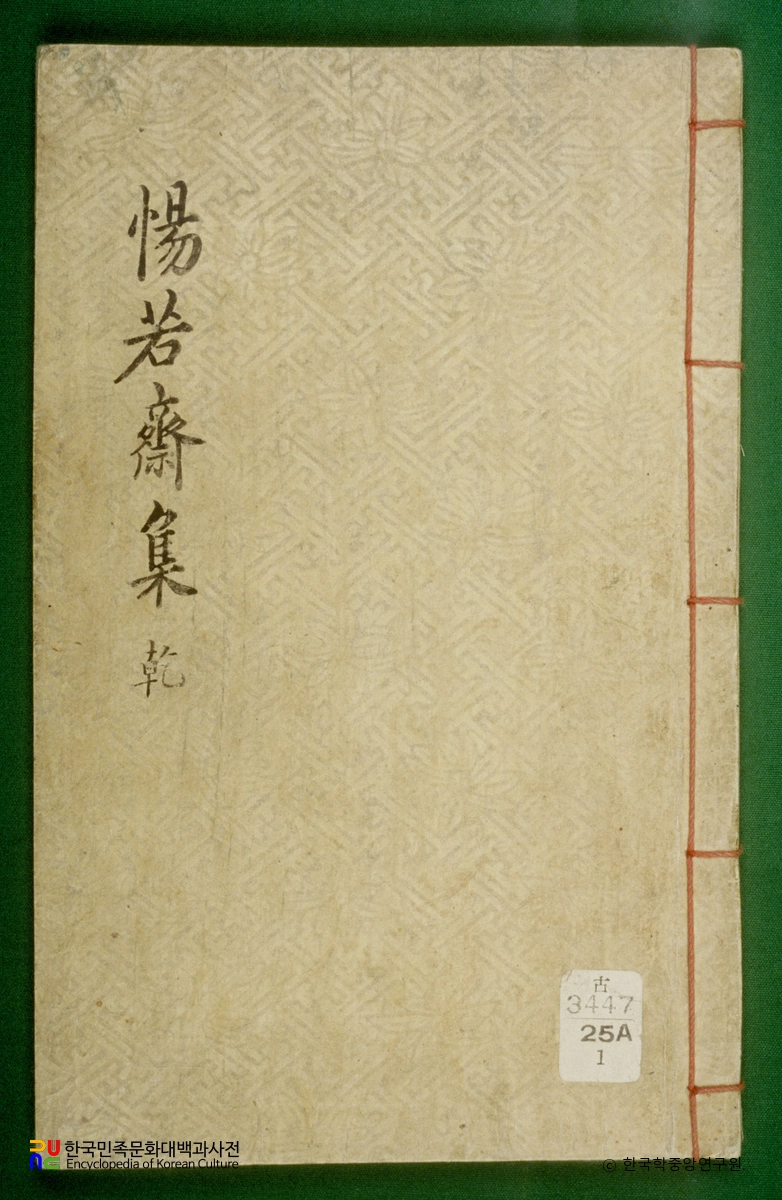 惕若齋集 乾
古
3447
25A
1
한국민족문화대백과사전
Encyclopedia of Korean Culture
© 한국학중앙연구원